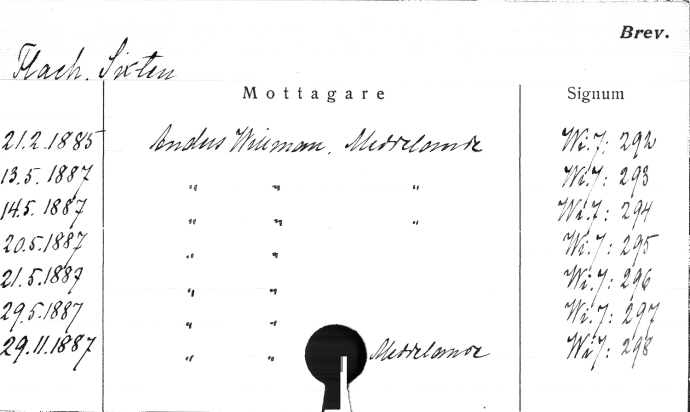 Brev.
Flach. Sixten
Mottagare Signum
21.2.1885 Anders Willman. Meddelande Wi.7: 292
13.5.1887 " " " Wi.7: 293
14.5.1887 " " " Wi.7: 294
20.5.1887 " " Wi.7: 295
21.5.1887 " " Wi.7: 296
29.5.1887 " " Wi.7: 297
29.11.1887 " " Meddelande Wi.7: 298